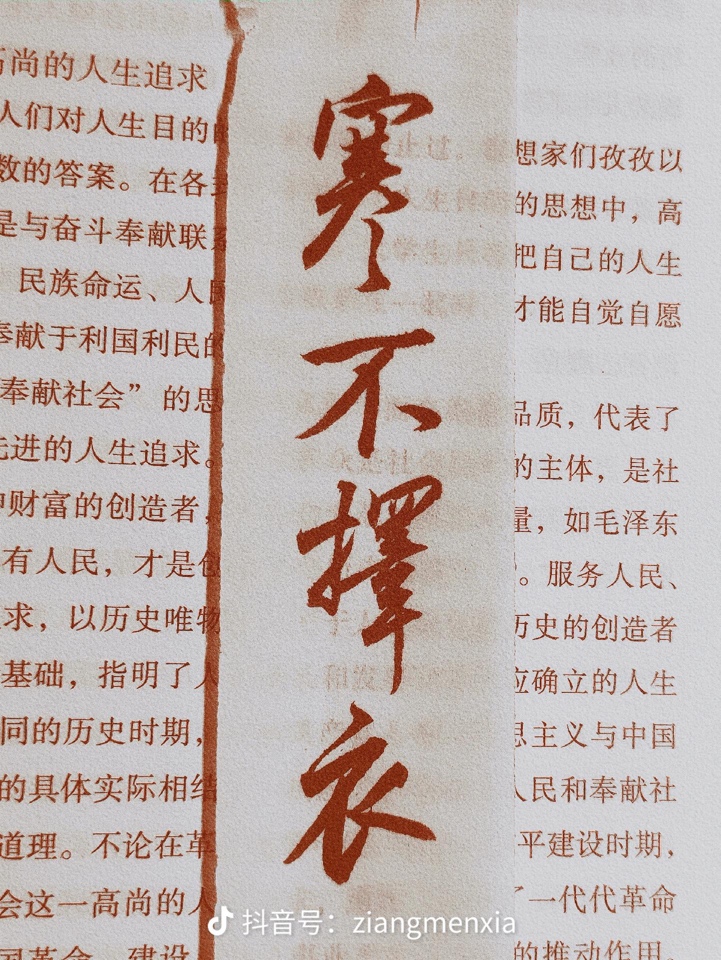 高尚的人生追求
人们对人生目的的
数的答案。在各
是与奋斗奉献联系
民族命运、人民
奉献于利国利民的
奉献社会”的思
先进的人生追求。
中财富的创造者，
有人民，才是创
求，以历史唯物
基础，指明了人
同的历史时期，
的具体实际相结
道理。不论在革
会这一高尚的人
国革命、建设
寒不擇衣
想家们孜孜以
的思想中，高
把自己的人生
才能自觉自愿
品质，代表了
的主体，是社
量，如毛泽东
。服务人民、
历史的创造者
应确立的人生
思主义与中国
人民和奉献社
平建设时期，
了一代代革命
的推动作用。
抖音号：ziangmenxia